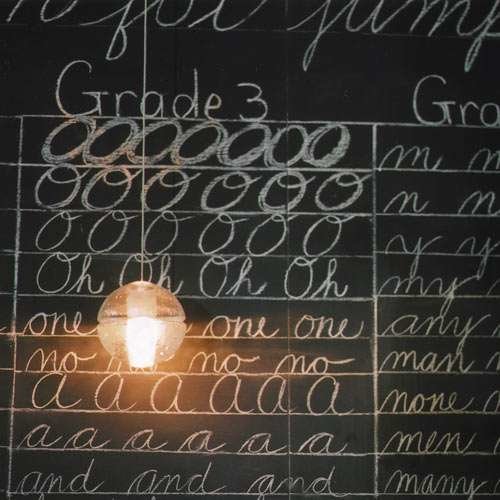 for jump
Grade 3
O O O O O O O
O O O O O O
O O O O O O
Oh Oh Oh Oh
one one one
no no no
a a a a a a
a a a a a a
and and and
m m
n n
y y
my
any
man
none
men
many